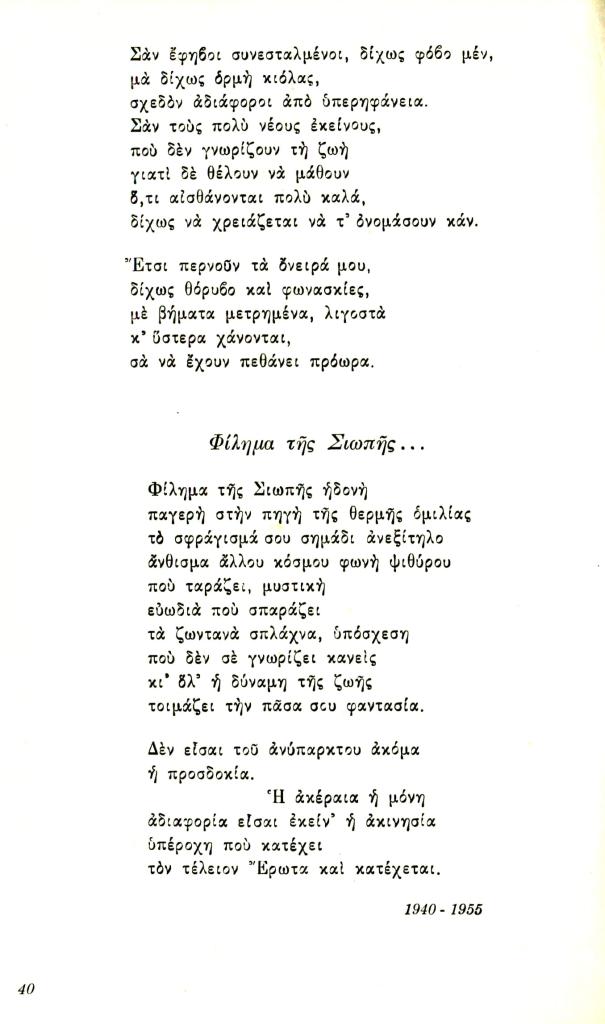 Σὰν ἔφηβοι συνεσταλμένοι, δίχως φόβο μέν,
μὰ δίχως ὁρμὴ κιόλας,
σχεδὸν ἀδιάφοροι ἀπὸ ὑπερηφάνεια.
Σὰν τοὺς πολὺ νέους ἐκείνους,
ποὺ δὲν γνωρίζουν τὴ ζωὴ
γιατὶ δὲ θέλουν νὰ μάθουν
ὅ,τι αἰσθάνονται πολὺ καλά,
δίχως νὰ χρειάζεται νὰ τ' ὀνομάσουν κάν.
Ἔτσι περνοῦν τὰ ὄνειρά μου,
δίχως θόρυβο καὶ φωνασκίες,
μὲ βήματα μετρημένα, λιγοστὰ
κ' ὕστερα χάνονται,
σὰ νὰ ἔχουν πεθάνει πρόωρα.
Φίλημα τῆς Σιωπῆς...
Φίλημα τῆς Σιωπῆς ἡδονὴ
παγερὴ στὴν πηγὴ τῆς θερμῆς ὁμιλίας
τὸ σφράγισμά σου σημάδι ἀνεξίτηλο
ἄνθισμα ἄλλου κόσμου φωνὴ ψιθύρου
ποὺ ταράζει, μυστικὴ
εὐωδιὰ ποὺ σπαράζει
τὰ ζωντανὰ σπλάχνα, ὑπόσχεση
ποὺ δὲν σὲ γνωρίζει κανεὶς
κι' ὅλ' ἡ δύναμη τῆς ζωῆς
τοιμάζει τὴν πᾶσα σου φαντασία.
Δὲν εἶσαι τοῦ ἀνύπαρκτου ἀκόμα
ἡ προσδοκία.
Ἡ ἀκέραια ἡ μόνη
ἀδιαφορία εἶσαι ἐκείν' ἡ ἀκινησία
ὑπέροχη ποὺ κατέχει
τὸν τέλειον Ἔρωτα καὶ κατέχεται.
1940 - 1955
40